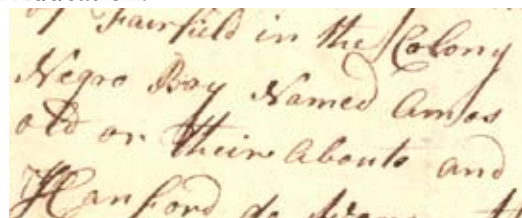 of Fairfield in the Colony
Negro Boy Named Amos
old or their Abouts and
Hanford do